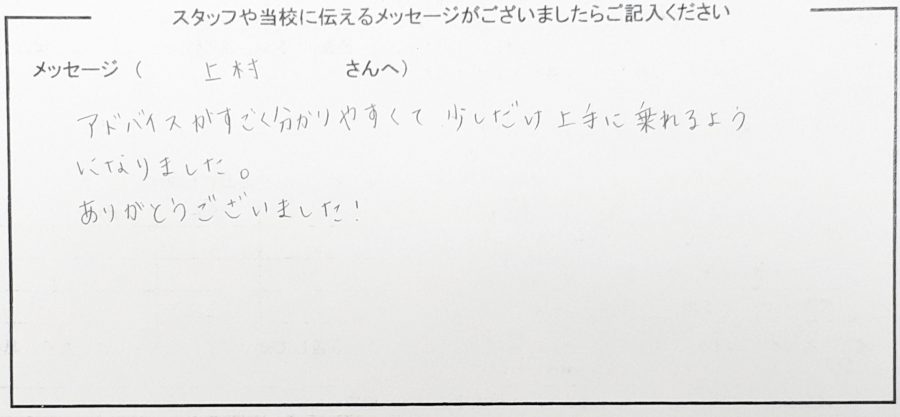 スタッフや当校に伝えるメッセージがございましたらご記入ください
メッセージ ( 上村 さんへ)
アドバイスがすごく分かりやすくて 少しだけ上手に乗れるよう
になりました。
ありがとうございました!